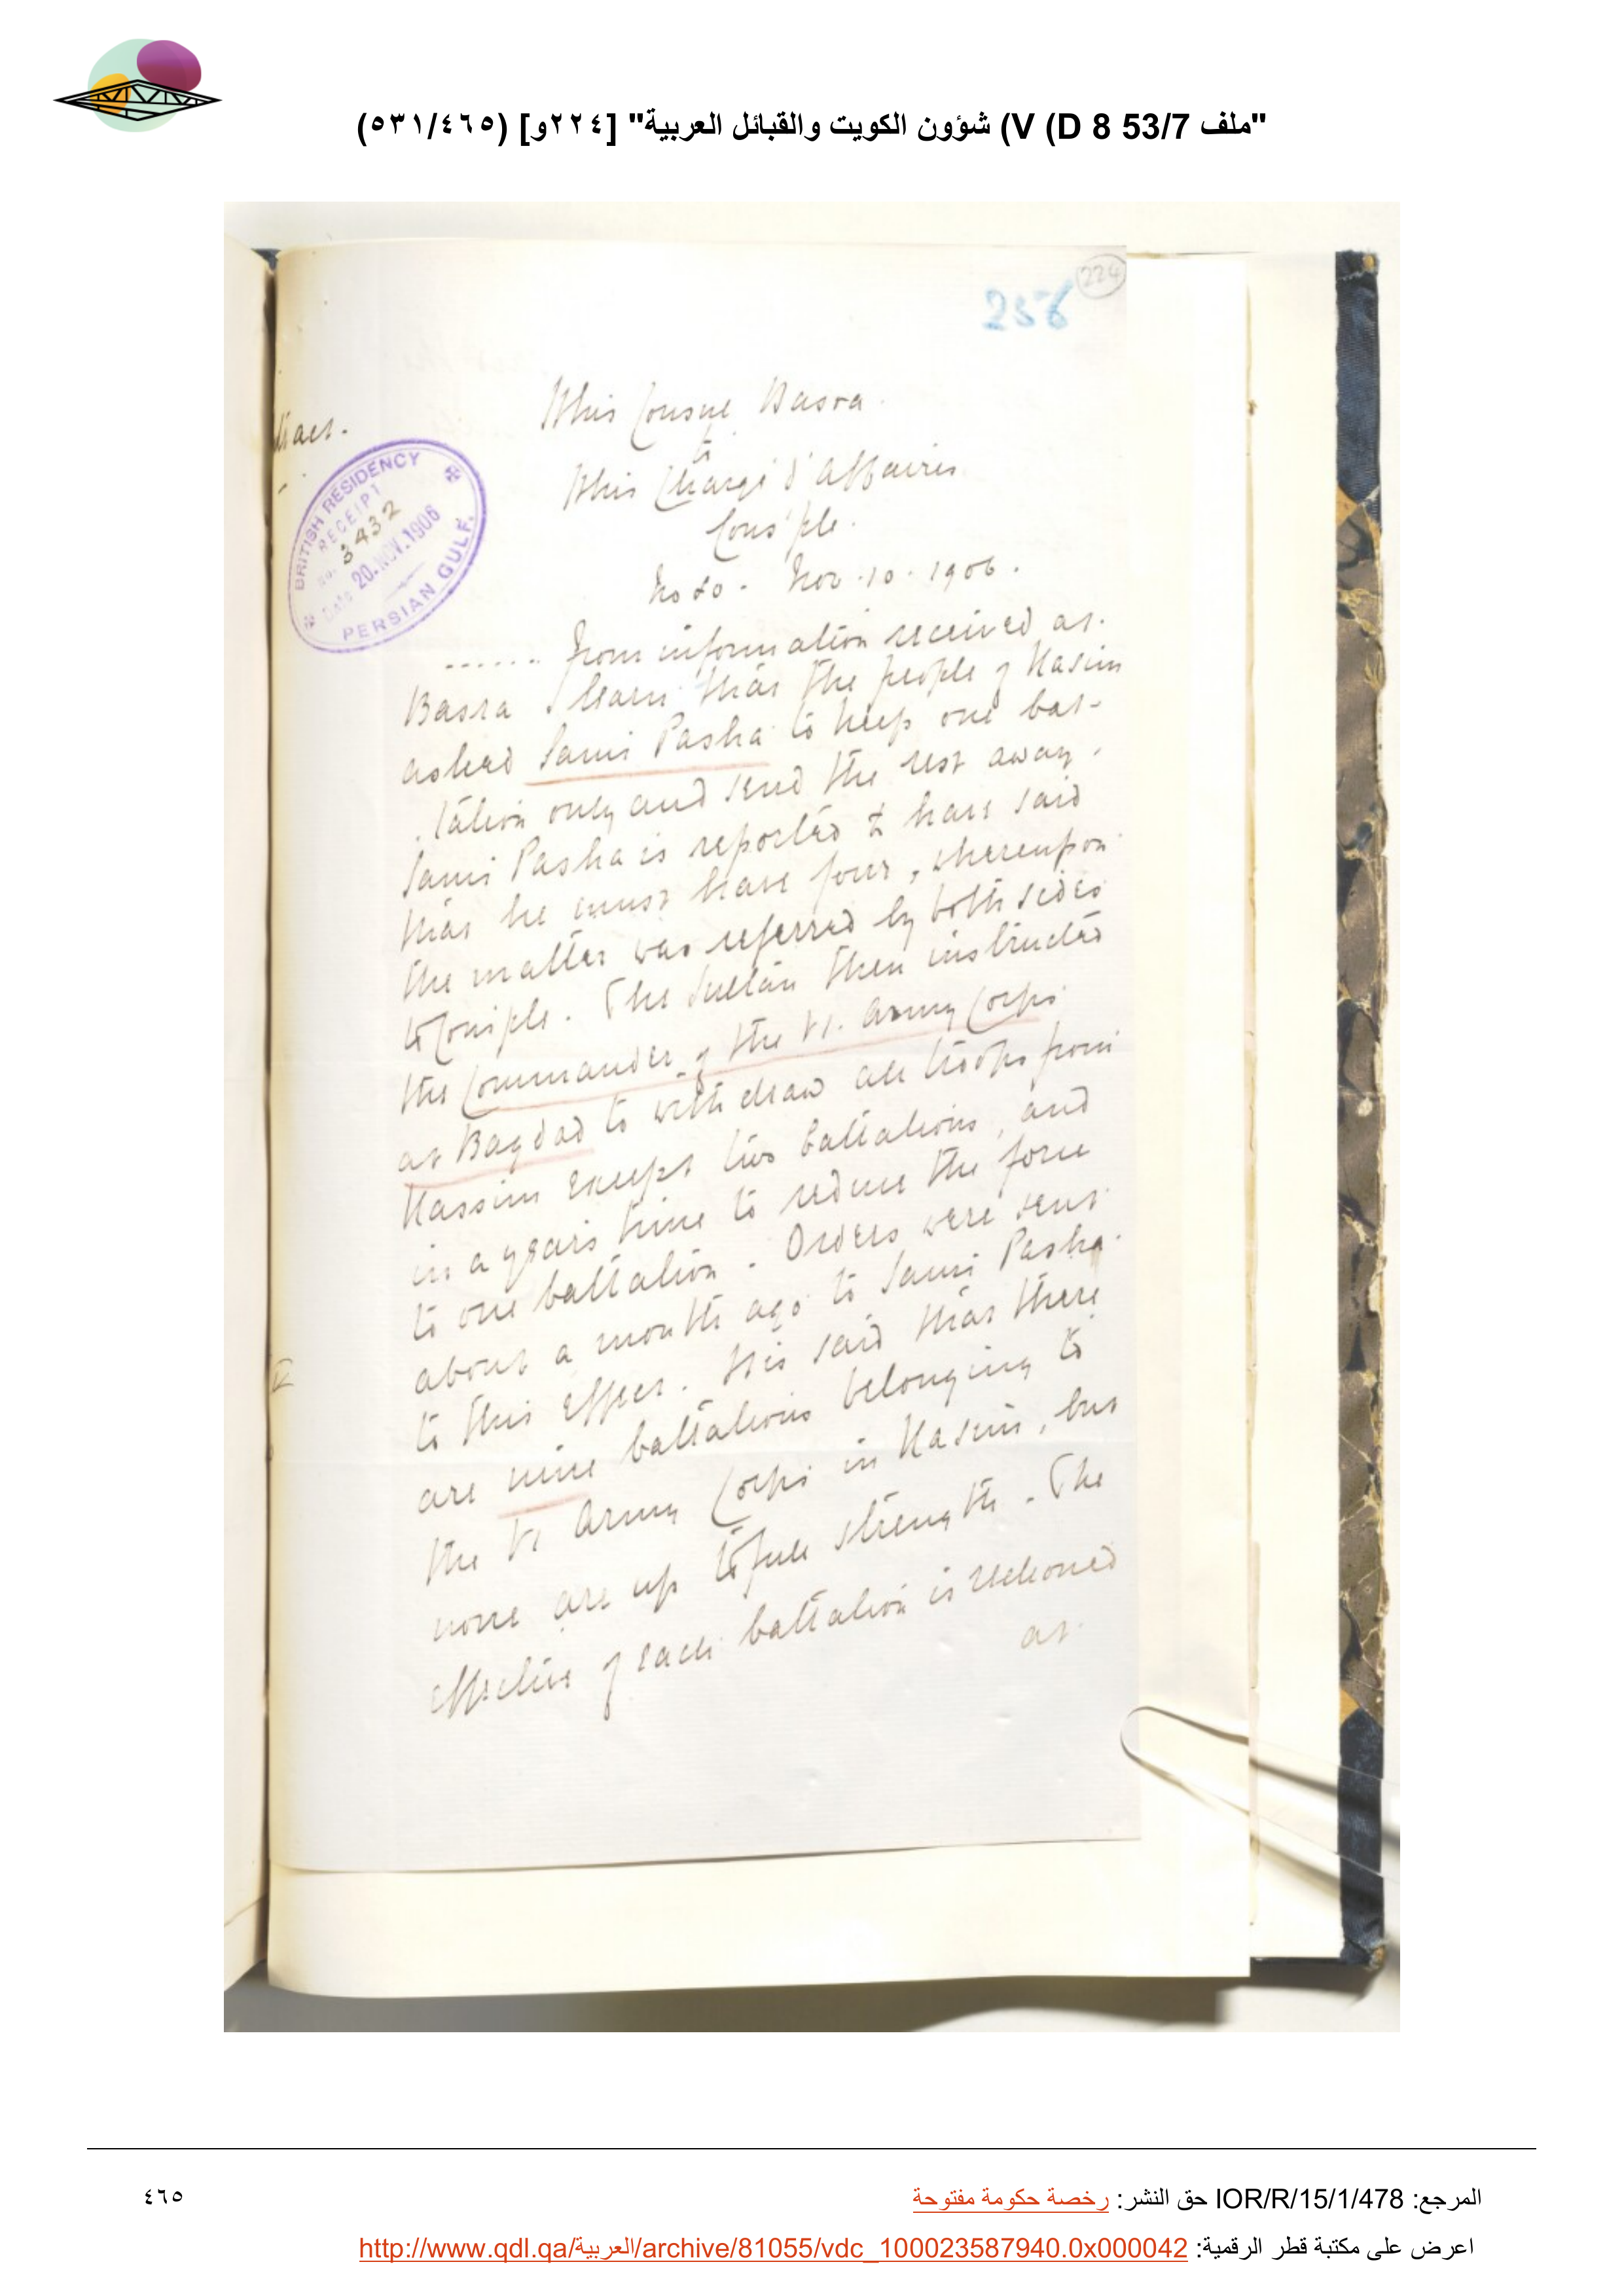 "ملف 53/7 V (D 8) شؤون الكويت والقبائل العربية" [٢٢٤و] (٤٦٥/٥٣١)
224
256
HBMs Consul Basra
to
HBMs Chargé d'Affaires
Cons'ple.
No 80 - Nov. 10. 1906.
BRITISH RESIDENCY
RECEIPT
No. 3432
Date 20. NOV. 1906
PERSIAN GULF.
...... From information received at
Basra I learn that the people of Kasim
asked Sami Pasha to keep one bat-
talion only and send the rest away.
Sami Pasha is reported to have said
that he must have four, whereupon
the matter was referred by both sides
to Cons'ple. The Sultan then instructed
the Commander of the VI. Army Corps
at Bagdad to withdraw all troops from
Kassim except two battalions, and
in a years time to reduce the force
to one battalion. Orders were sent
about a month ago to Sami Pasha
to this effect. It is said that there
are nine battalions belonging to
the VI Army Corps in Kasim, but
none are up to full strength. The
effective of each battalion is reckoned
at
المرجع: IOR/R/15/1/478 حق النشر: رخصة حكومة مفتوحة
٤٦٥
اعرض على مكتبة قطر الرقمية: http://www.qdl.qa/العربية/archive/81055/vdc_100023587940.0x000042